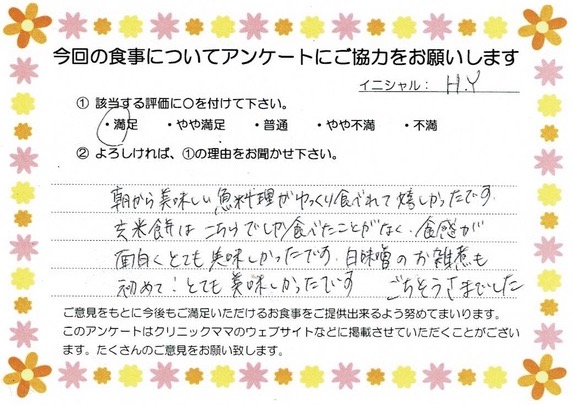 今回の食事についてアンケートにご協力をお願いします
イニシャル： H.Y
① 該当する評価に〇を付けて下さい。
・満足　・やや満足　・普通　・やや不満　・不満
② よろしければ、①の理由をお聞かせ下さい。
朝から美味しい魚料理がゆっくり食べれて嬉しかったです。
玄米餅はこちらでしか食べたことがなく、食感が
面白くとても美味しかったです。白味噌のお雑煮も
初めて！とても美味しかったです　ごちそうさまでした
ご意見をもとに今後もご満足いただけるお食事をご提供出来るよう努めてまいります。
このアンケートはクリニックママのウェブサイトなどに掲載させていただくことがござい
ます。たくさんのご意見をお願い致します。